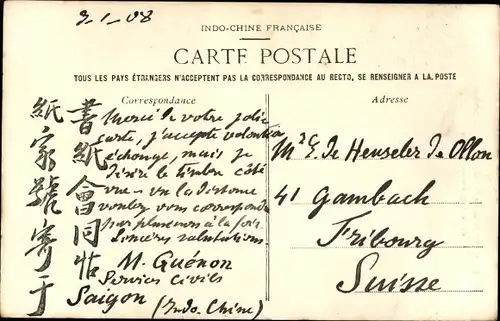 3-1-08
INDO-CHINE FRANÇAISE
CARTE POSTALE
TOUS LES PAYS ÉTRANGERS N'ACCEPTENT PAS LA CORRESPONDANCE AU RECTO, SE RENSEIGNER A LA POSTE
Correspondance
Adresse
書紙會同帖
紙家號寄于
Merci de votre jolie
carte, j'accepte volontiers
échange, mais je
désire le timbre côté
vue - vu la distance
voulez vous correspondre
par plusieurs à la fois.
Sincères salutations
M. Guénon
Services Civils
Saigon (Indo-Chine)
E. de Heuseler de Ollon
41 Gambach
Fribourg
Suisse